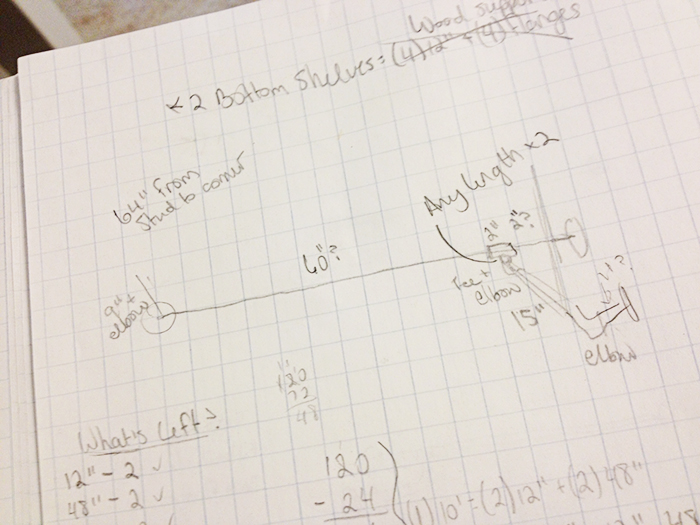 Wood suppor
< 2 Bottom Shelves = (4) 12" + (4) flanges
64" from
stud to corner
Any length x 2
40"?
2"
2"?
9" +
elbow
Tee +
elbow
15"
1"?
elbow
120
72
48
What's Left?
12" - 2 ✓
48" - 2 ✓
120
- 24
(1) 10' = (2) 12" + (2) 48"
48"